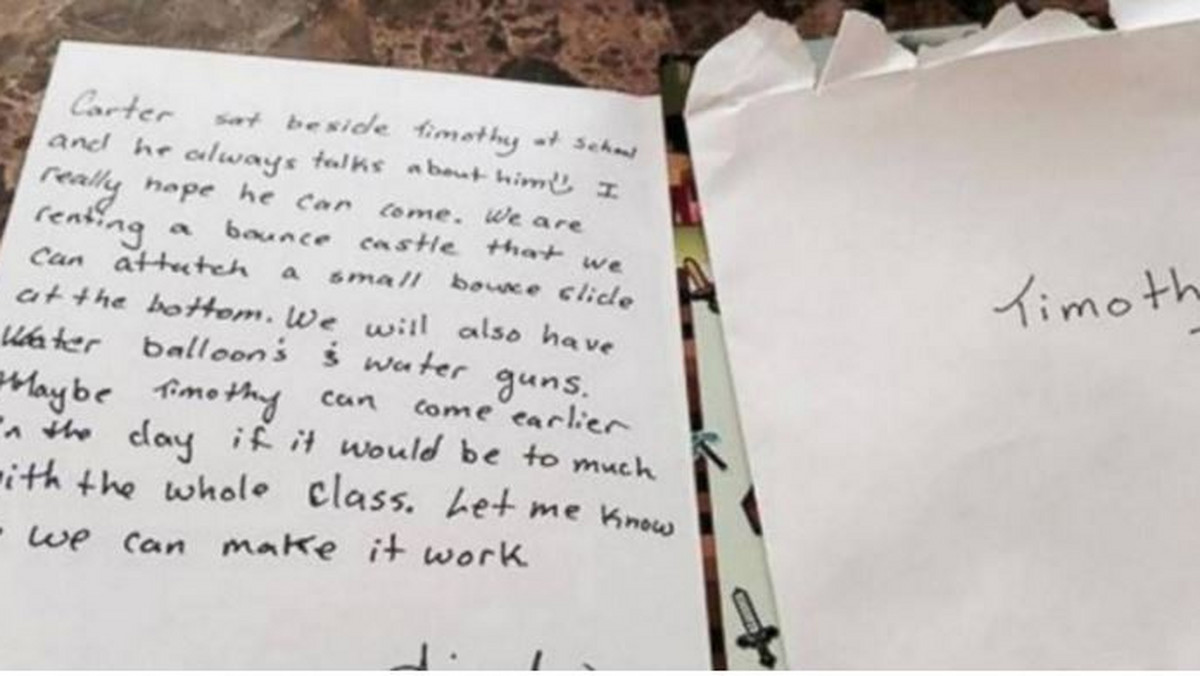 Carter sat beside Timothy at school
and he always talks about him I
really hope he can come. We are
renting a bounce castle that we
can attatch a small bounce slide
at the bottom. We will also have
Water balloon's & water guns.
Maybe Timothy can come earlier
in the day if it would be to much
with the whole class. Let me know
we can make it work
Timoth